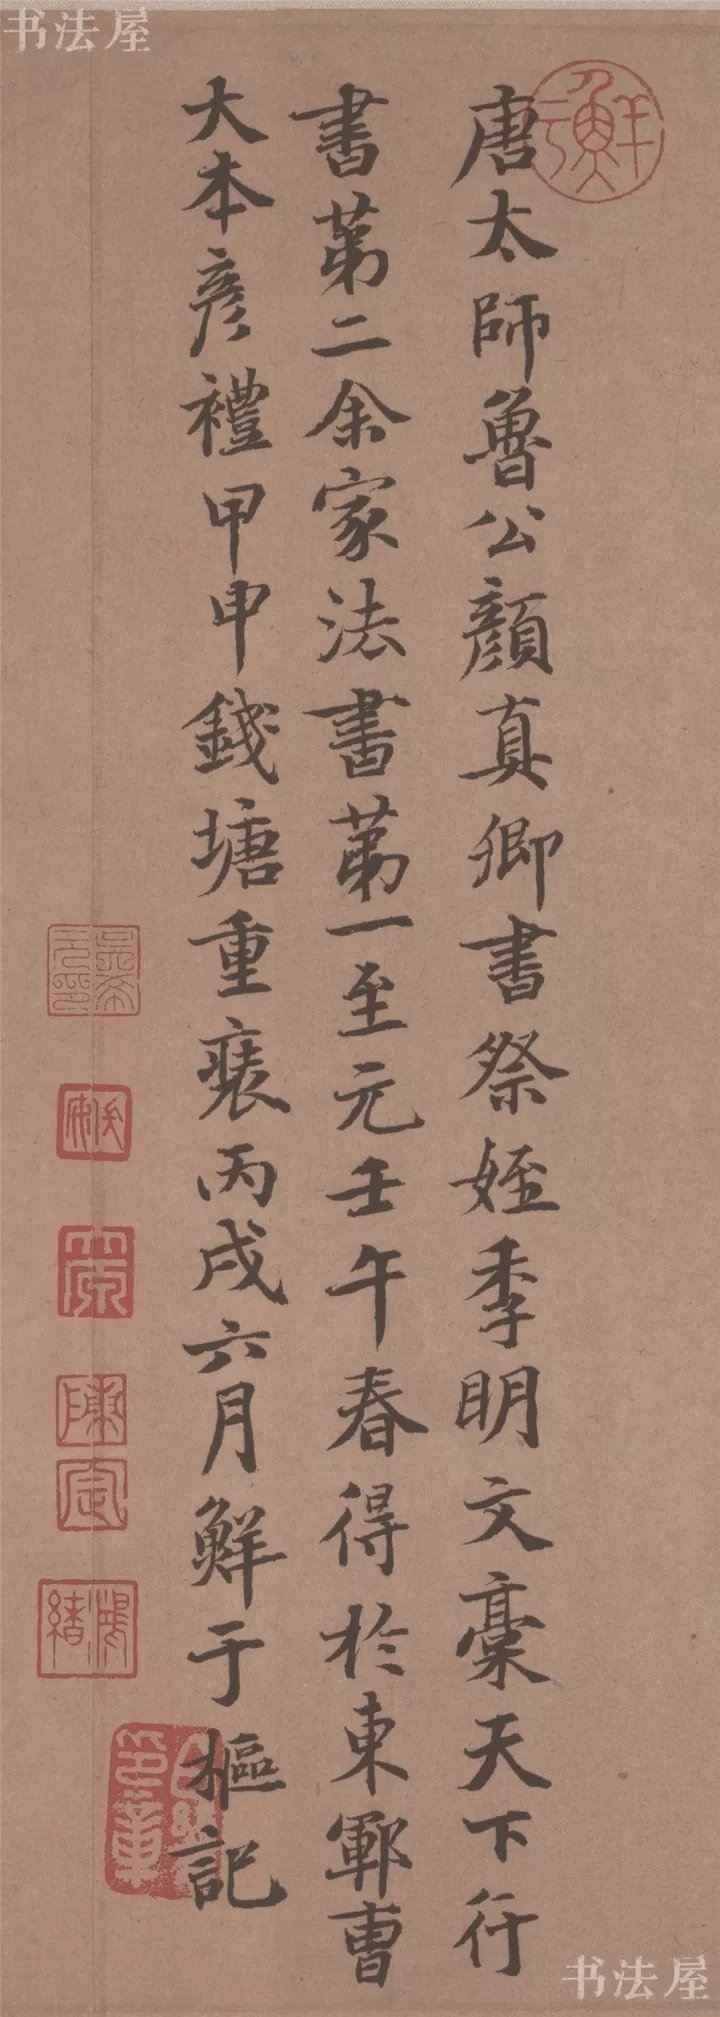 书法屋
唐太師魯公顔真卿書祭姪季明文槀天下行
書第二余家法書第一至元壬午春得於東鄆曹
大本彦禮甲申錢塘重裱丙戌六月鮮于樞記
书法屋